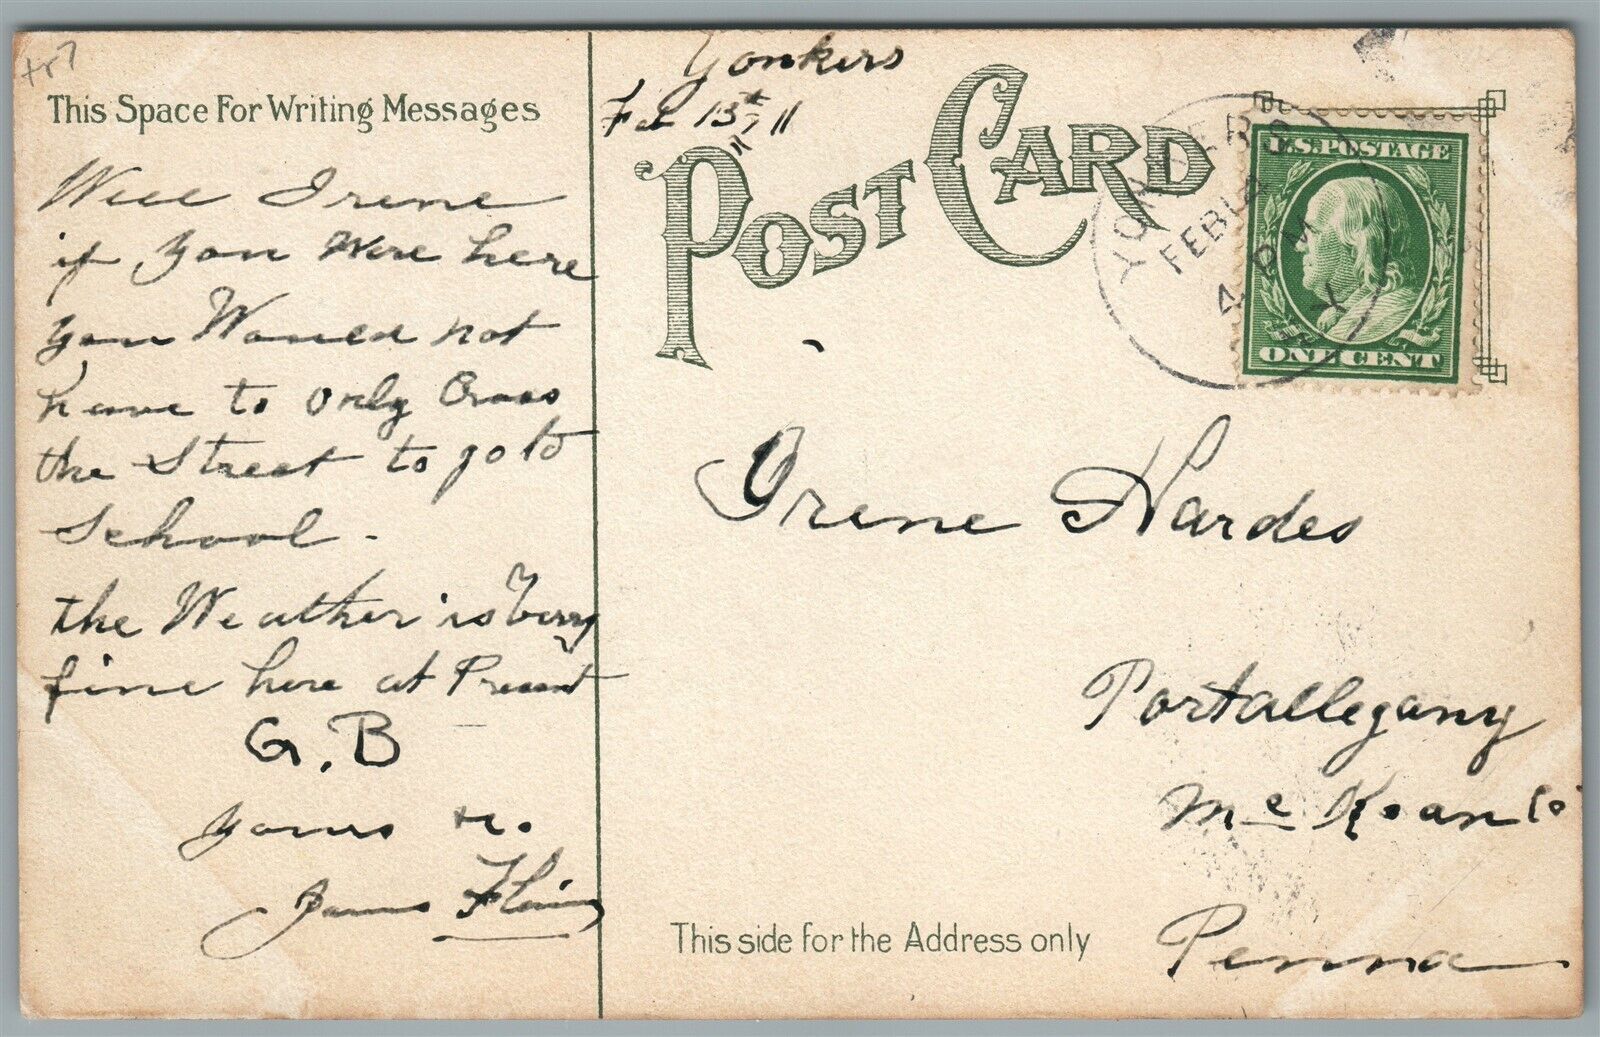 This Space For Writing Messages
Well Irene
if you were here
you Would not
have to only Cross
the Street to go to
School.
the Weather is Verry
fine here at Present
G.B
yours tr.
James
Yonkers
Feb 13th 11
POST CARD
YONKERS
FEB 14
4 PM
N Y
U.S. POSTAGE
ONE CENT
Irene Hardes
Portallegany
Mc Kean Co
Penna
This side for the Address only